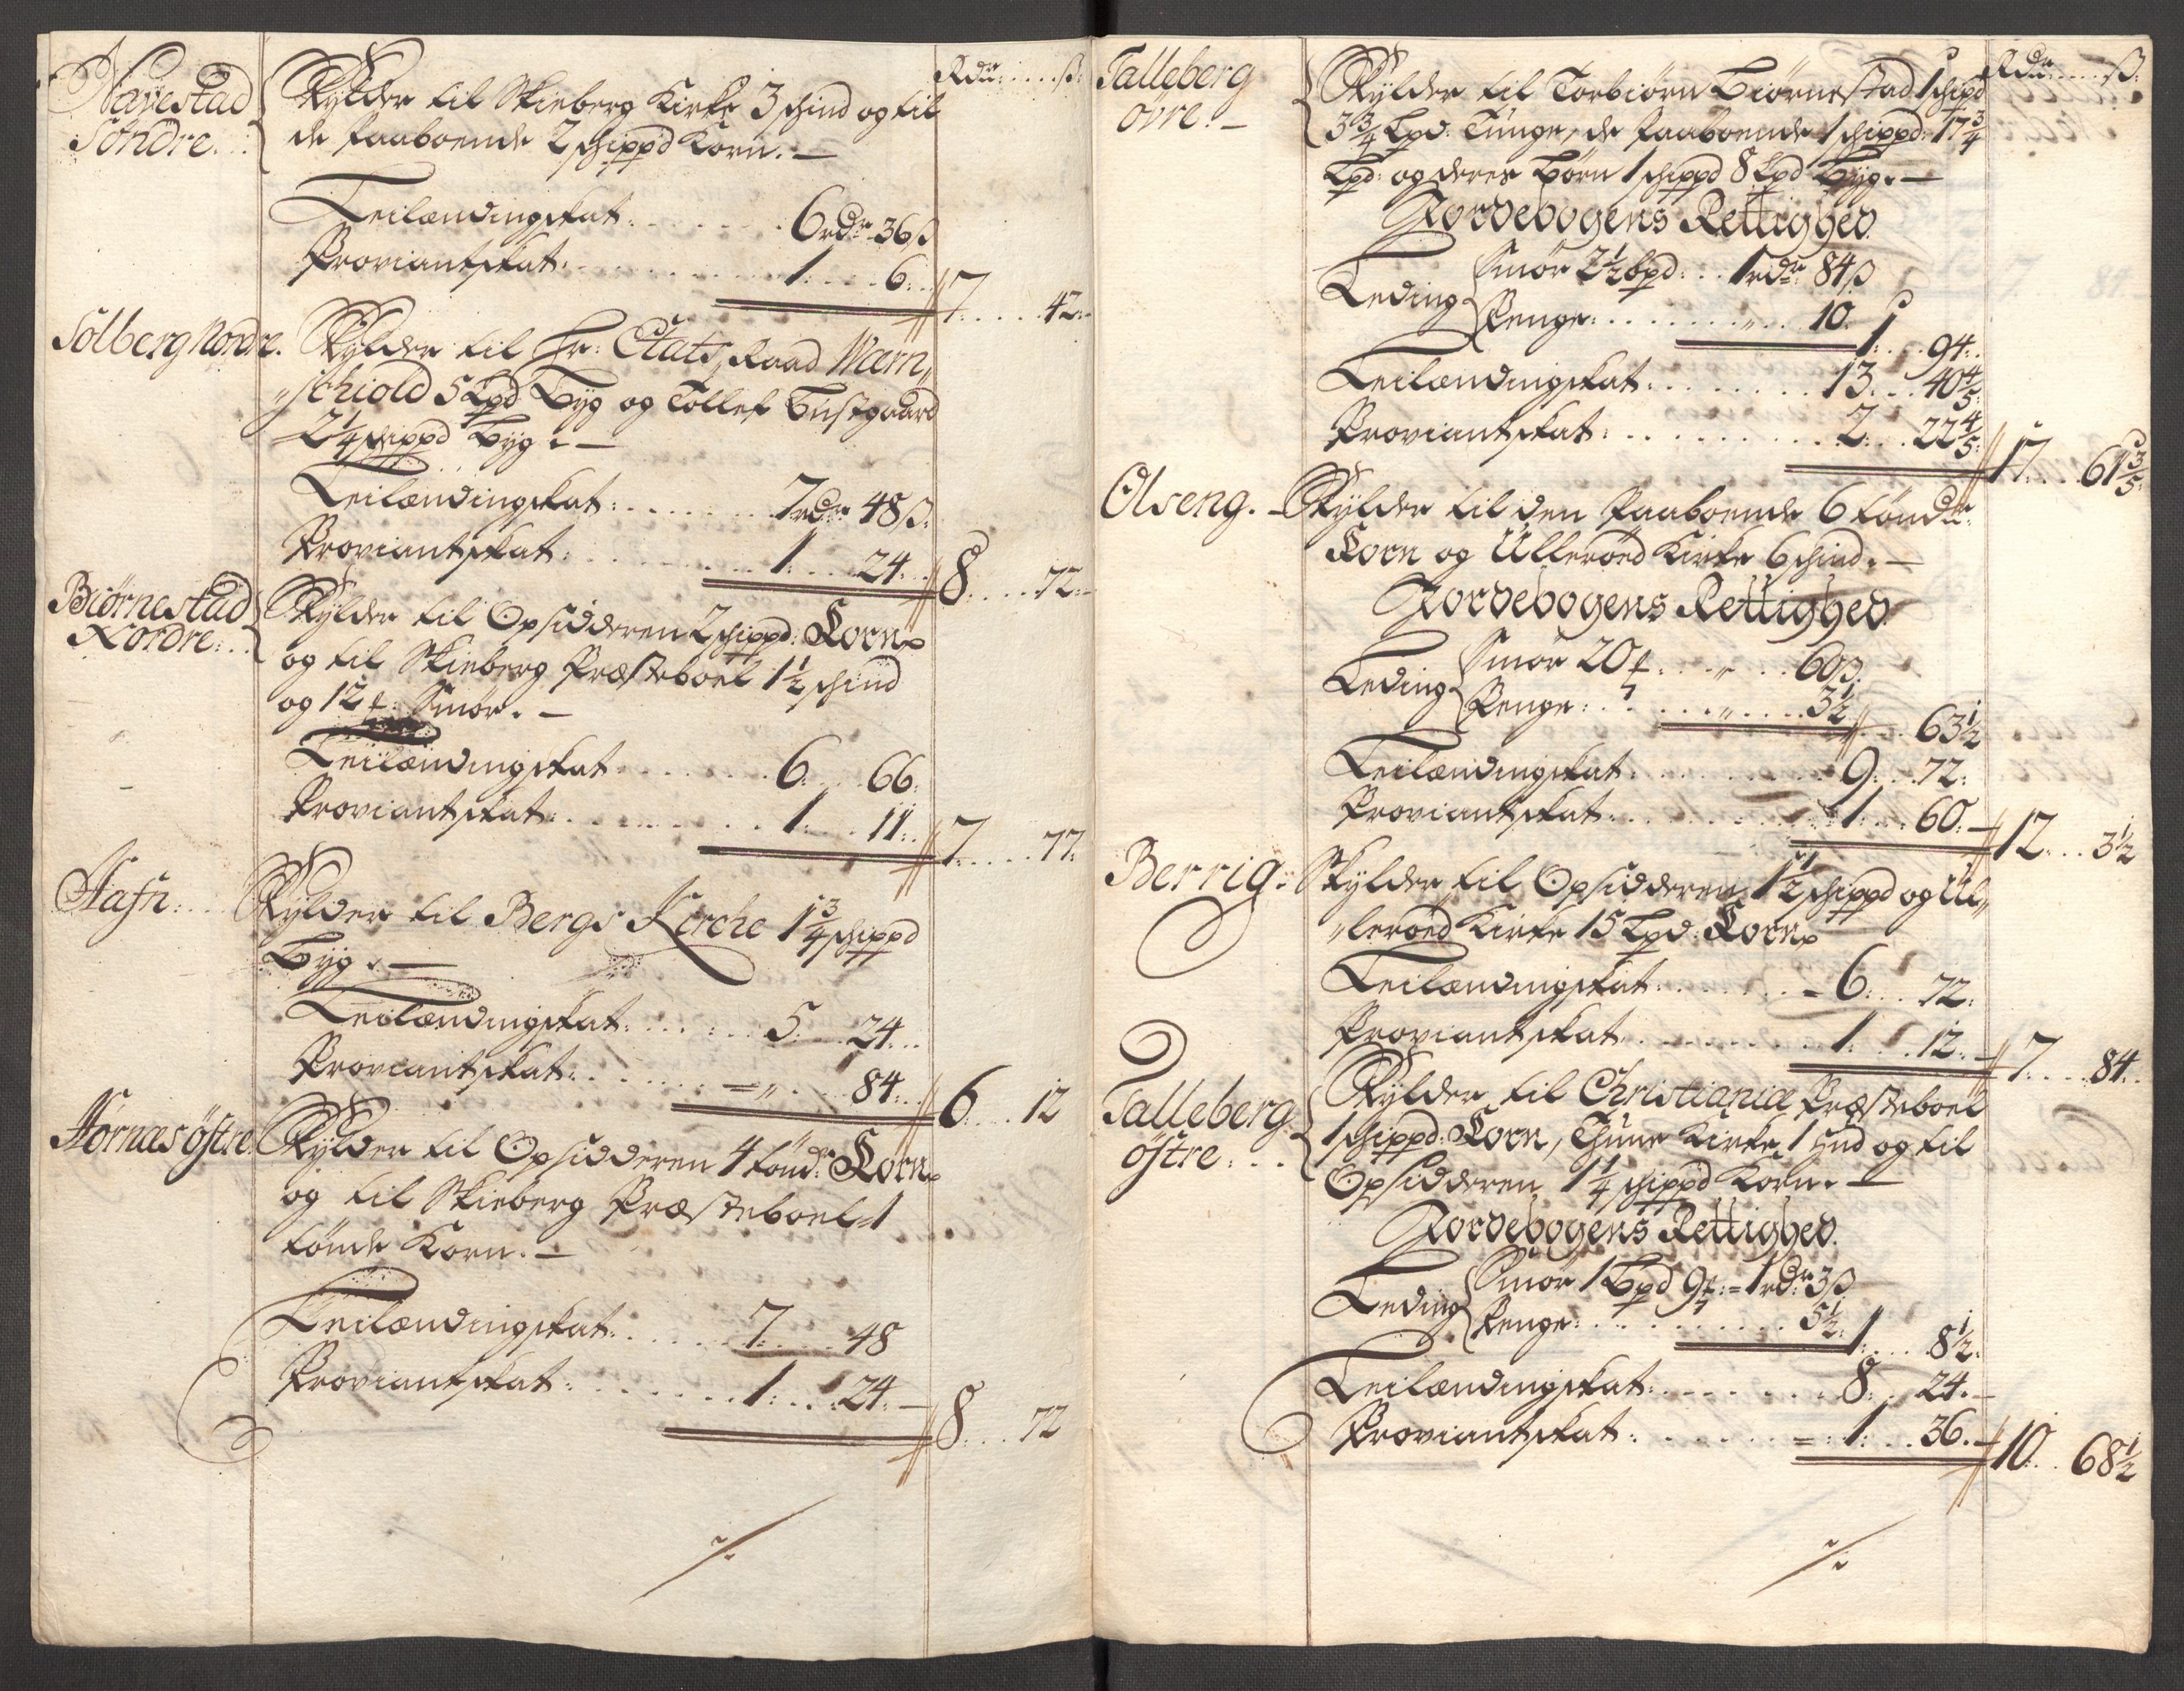 Rdr: ß:
Hayestad
Söndre.
Skylder til Skieberg Kirke 3 shind og til
de Paaboende 2 schippd Korn. —
Leilændingskat: 6 rdr 36 ß
Proviantskat: 1 6: 7 42:
Sölberg Nordre.
Skylder til Hr: Etats Raad Wærn„
„schiold 5 Lpd Byg og Tollef Bustgaard
2¼ schippd Byg. —
Leilændingskat: 7 rdr 48 ß:
Proviantskat: 1 24: 8 72:
Biörnestad
Nordre:
Skylder til Opsidderen 2 schippd: Korn
og til Skieberg Præsteboel 1½ shind
og 12 f: Smör. —
Leilændingskat 6 66:
Proviantskat: 1 11: 7 77:
Hafn:
Skylder til Bergs Kirche 1¾ schippd
Byg. —
Leilændingskat: 5 24:
Proviantskat: „ 84: 6 12
Hornæs östre
Skylder til Opsidderen 4 tönd: Korn
og til Skieberg Præsteboel 1
tönde Korn. —
Leilændingskat: 7 48
Proviantskat: 1 24: 8 72
Rdr: ß:
Talleberg
övre. —
Skylder til Torbiörn Biörnestad 1 schipd
3¾ Lpd: Tunge, de Paaboende 1 schippd: 17¾
Lpd: og deres Börn 1 schippd 8 Lpd Byg. —
Jordebogens Rettighed
Leding Smör 2½ bpd: 1 rdr 84 ß
Penge: „ 10. 1: 94:
Leilændingskat: 13 40⅘
Proviantskat: 2: 22⅘ 17 61⅗:
Olseng. —
Skylder til den Paaboende 6 tönder
Korn og Ulleröed Kirke 6 shind. —
Jordebogens Rettighed
Leding Smör 20 f: „ 60 ß:
Penge: „ 3½ „ 63½
Leilændingskat: 9: 72:
Proviantskat: 1: 60: 12 3½
Berrig:
Skylder til Opsidderen 1½ schippd og Ul„
„leröed Kirke 15 Lpd: Korn
Leilændingskat: 6: 72:
Proviantskat: 1 12: 7 84:
Talleberg
östre:
Skylder til Christianiæ Præsteboel
1 schippd: Korn, Thune Kirke 1 hud og til
Opsidderen 1¼ schippd Korn. —
Jordebogens Rettighed
Leding Smör 1 Bpd 9 f: = 1 rdr 3 ß
Penge: 5½: 1: 8½:
Leilændingskat: 8: 24. —
Proviantskat: 1: 36. — 10 68½